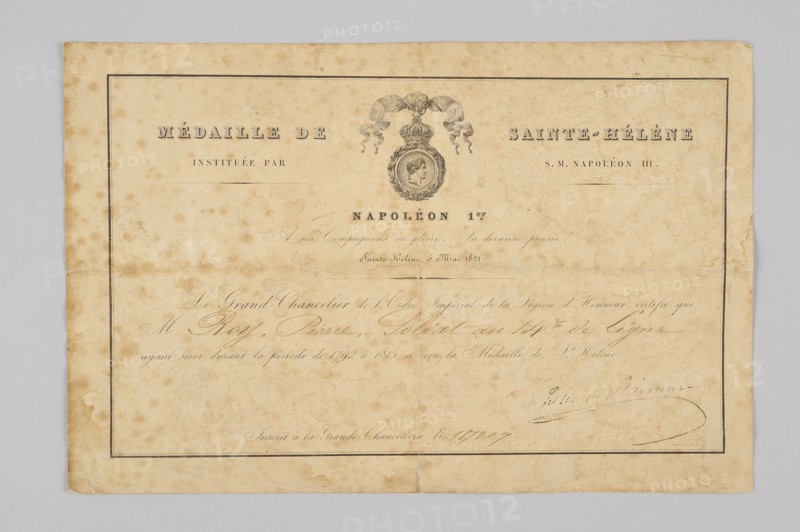 MÉDAILLE DE SAINTE-HÉLÈNE
INSTITUÉE PAR S. M. NAPOLÉON III.
NAPOLÉON 1er
A ses Compagnons de gloire, Sa dernière pensée!
Sainte-Hélène, 5 Mai 1821
Le Grand Chancelier de l'Ordre Impérial de la Légion d'Honneur certifie que
M Roy, Pierre, Soldat au 14e de Ligne
ayant servi durant la période de 1792 à 1815, a reçu la Médaille de Ste Hélène
Duc de
Inscrit à la Grande Chancellerie No
PHOTO12